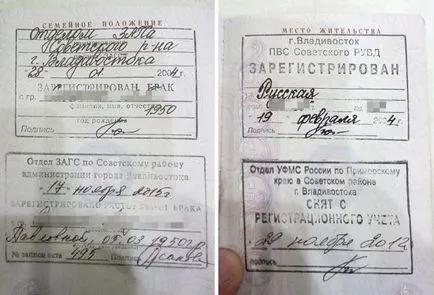 СЕМЕЙНОЕ ПОЛОЖЕНИЕ
Отделом ЗАГСа
Советского р-на
г. Владивостока
28 01 2004г.
ЗАРЕГИСТРИРОВАН БРАК
с гр.
фамилия, имя, отчество
1950
год рождения
Подпись
Отдел ЗАГС по Советскому району
администрации города Владивостока
17 ноября 2015г
ЗАРЕГИСТРИРОВАНО РАСТОРЖЕНИЕ БРАКА
Павловной, 03 1950г
№ записи акта 495
МЕСТО ЖИТЕЛЬСТВА
г.Владивосток
ПВС Советского РУВД
ЗАРЕГИСТРИРОВАН
Русская
19 февраля 2004г.
Подпись
Отдел УФМС России по Приморскому
краю в Советском районе
г. Владивостока
СНЯТ С
РЕГИСТРАЦИОННОГО УЧЕТА
29 ноября 2012
Подпись